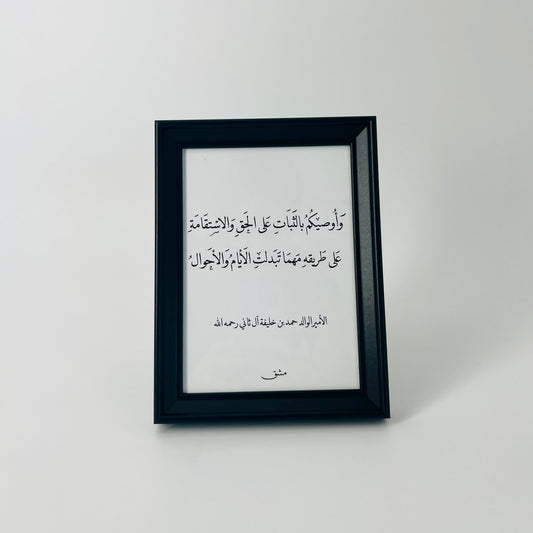 وَأُوصيكُمُ بالثَّبَاتِ عَلى الحَقِ وَالاسْتِقَامَةِ
عَلى طَريقِهِ مَهمَا تَبَدلتِ الَأيامُ وَالأَحوالُ
الأمير الوالد حمد بن خليفة آل ثاني رحمه الله
مشق